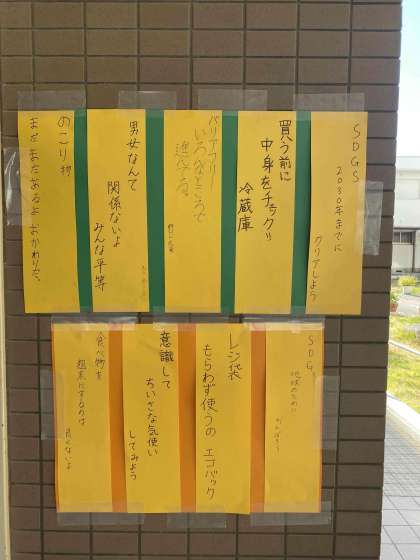 SDGS
2030年までに
クリアしよう
買う前に
中身をチェック
冷蔵庫
バリアフリー
いろんなところで
進んでる
男女なんて
関係ないよ
みんな平等
のこり物
まだまだあるよ おかわりだ、
SDGS
地球のために
がんばろう
レジ袋
もらわず使うの エコバック
意識して
ちいさな気使い
してみよう
食べ物を
粗末にするのは
良くないよ